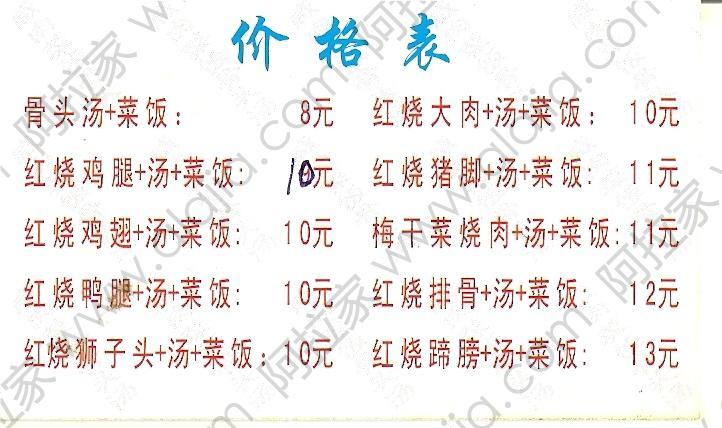 价格表
骨头汤+菜饭： 8元 红烧大肉+汤+菜饭： 10元
红烧鸡腿+汤+菜饭： 10元 红烧猪脚+汤+菜饭： 11元
红烧鸡翅+汤+菜饭： 10元 梅干菜烧肉+汤+菜饭：11元
红烧鸭腿+汤+菜饭： 10元 红烧排骨+汤+菜饭： 12元
红烧狮子头+汤+菜饭：10元 红烧蹄膀+汤+菜饭： 13元
阿拉家 www.alajia.com